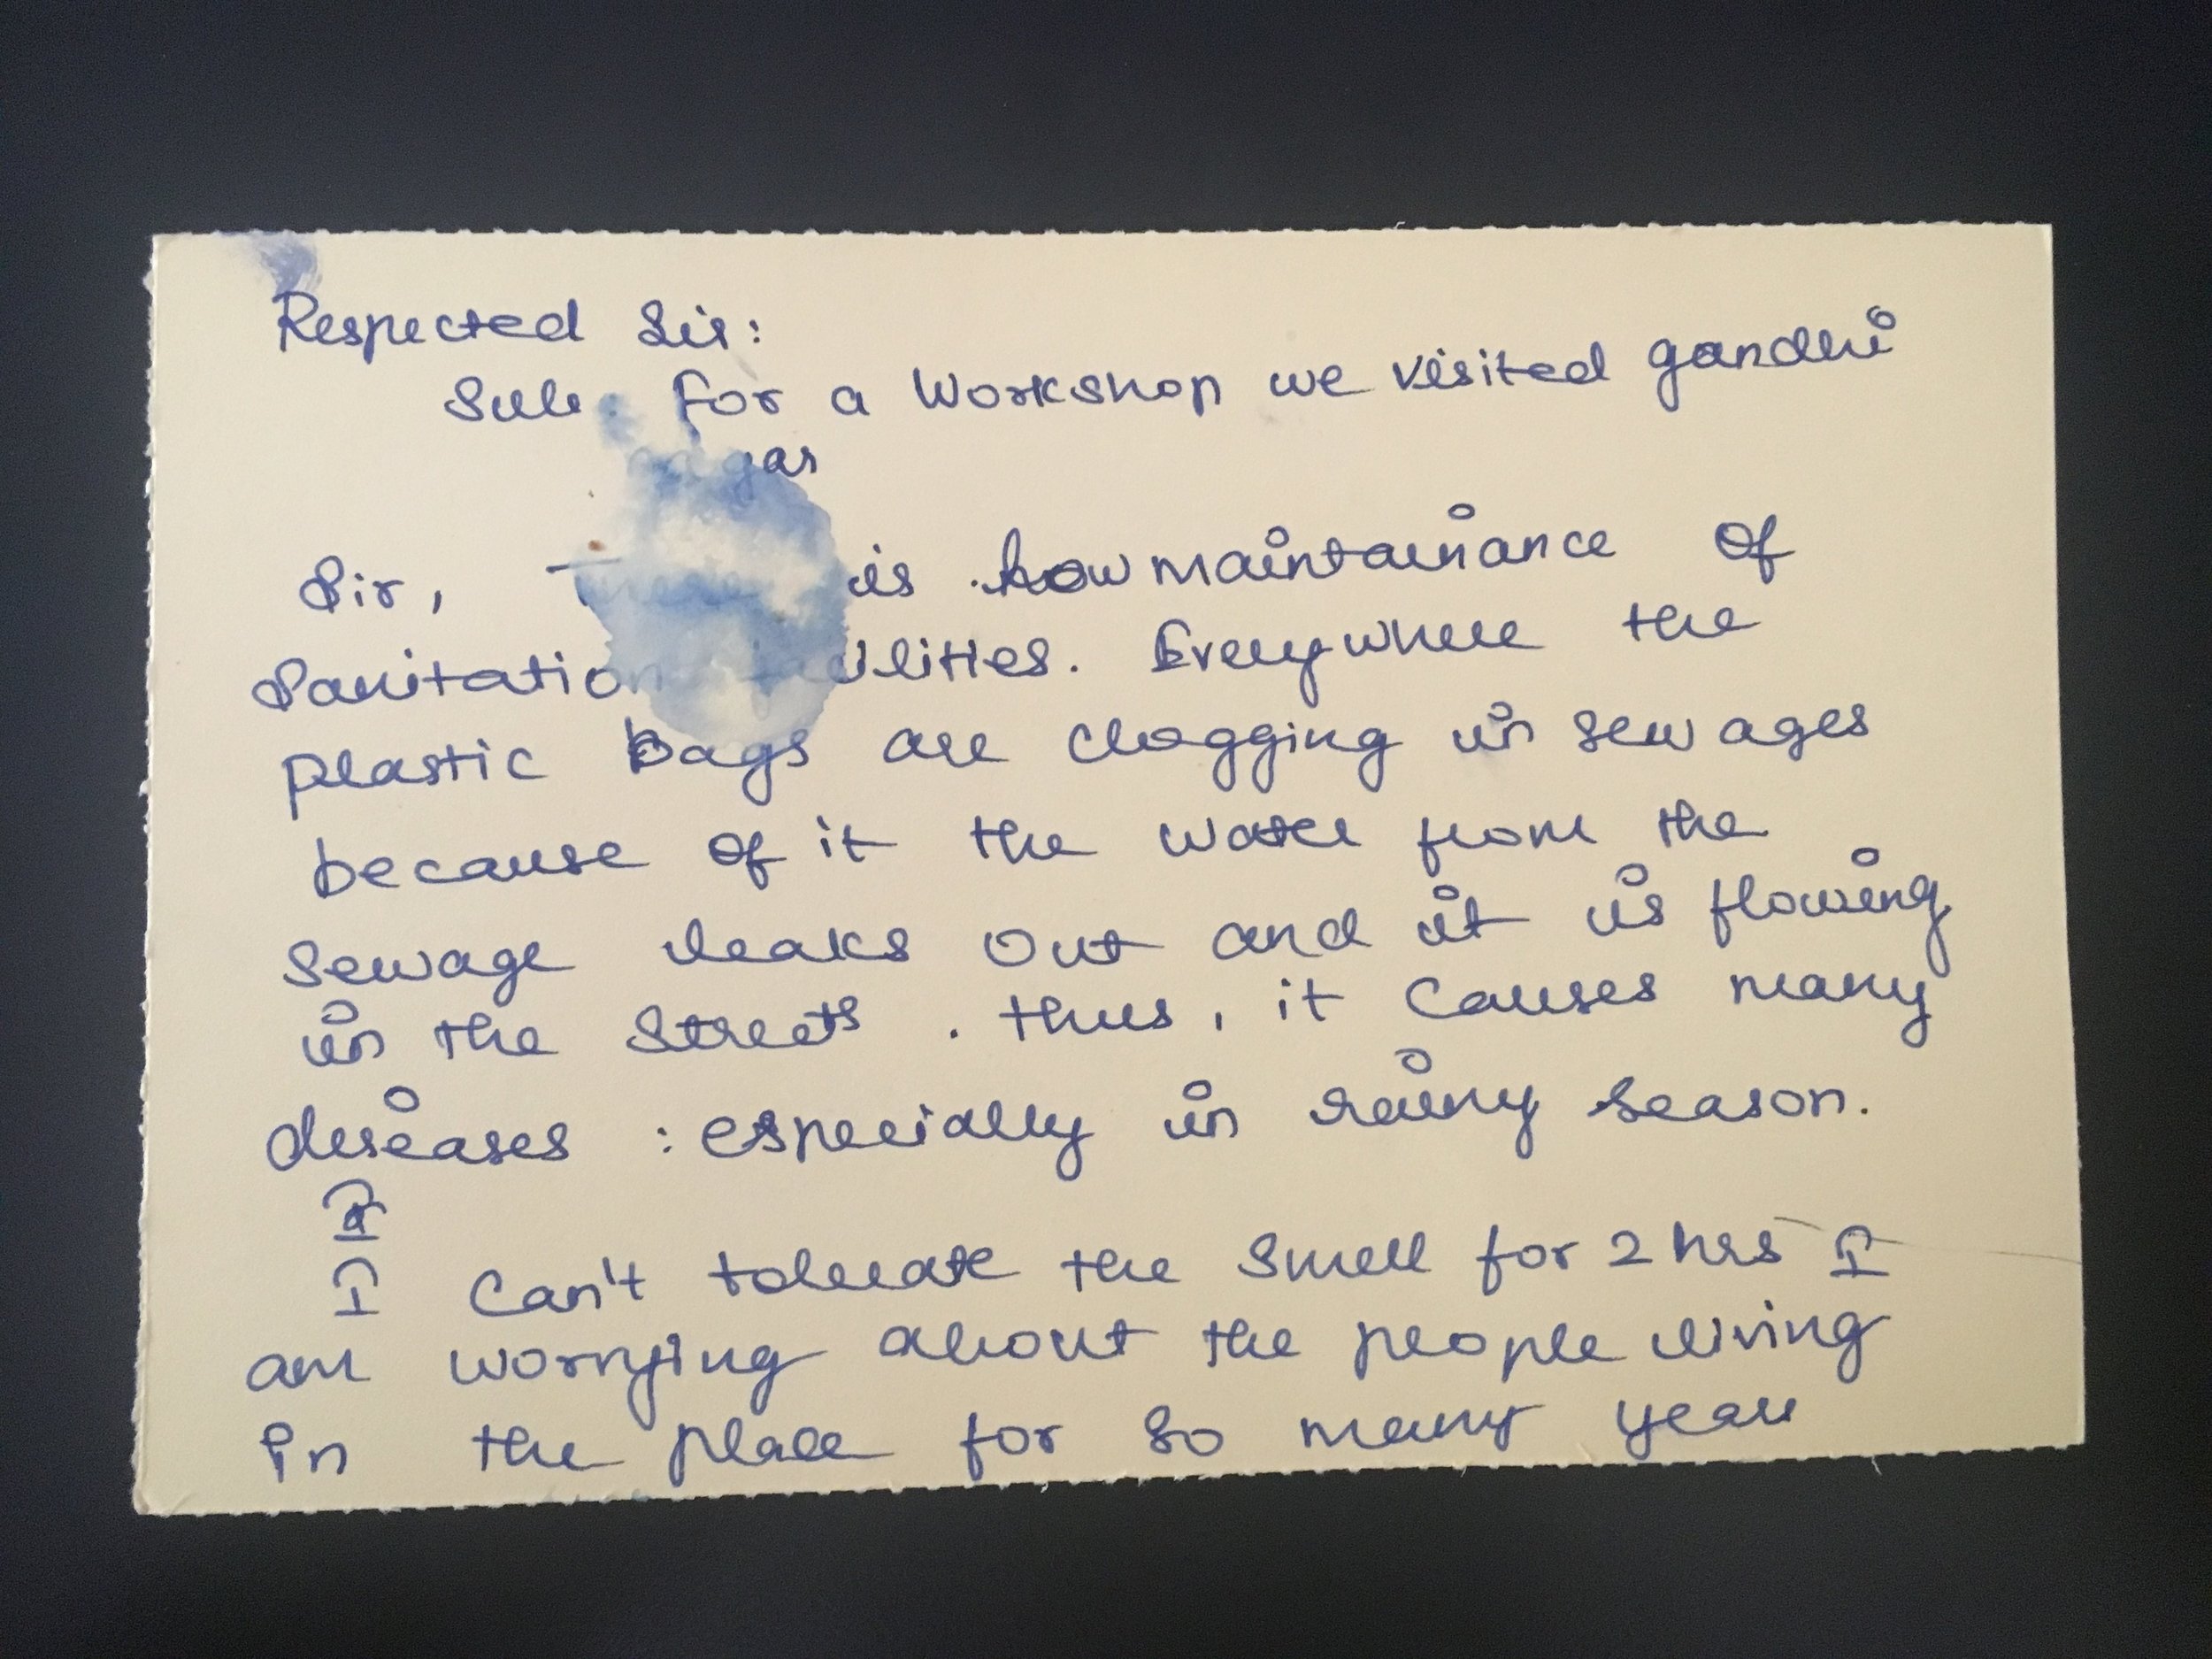 Respected Sir:
Sub: For a Workshop we visited gandhi
nagar
Sir, There is low maintainance of
Sanitation facilities. Everywhere the
plastic bags are clogging in sewages
because of it the water from the
sewage leaks out and it is flowing
in the streets. thus, it causes many
diseases : especially in rainy season.
I
I Can't tolerate the smell for 2 hrs I
am worrying about the people living
in the place for so many year